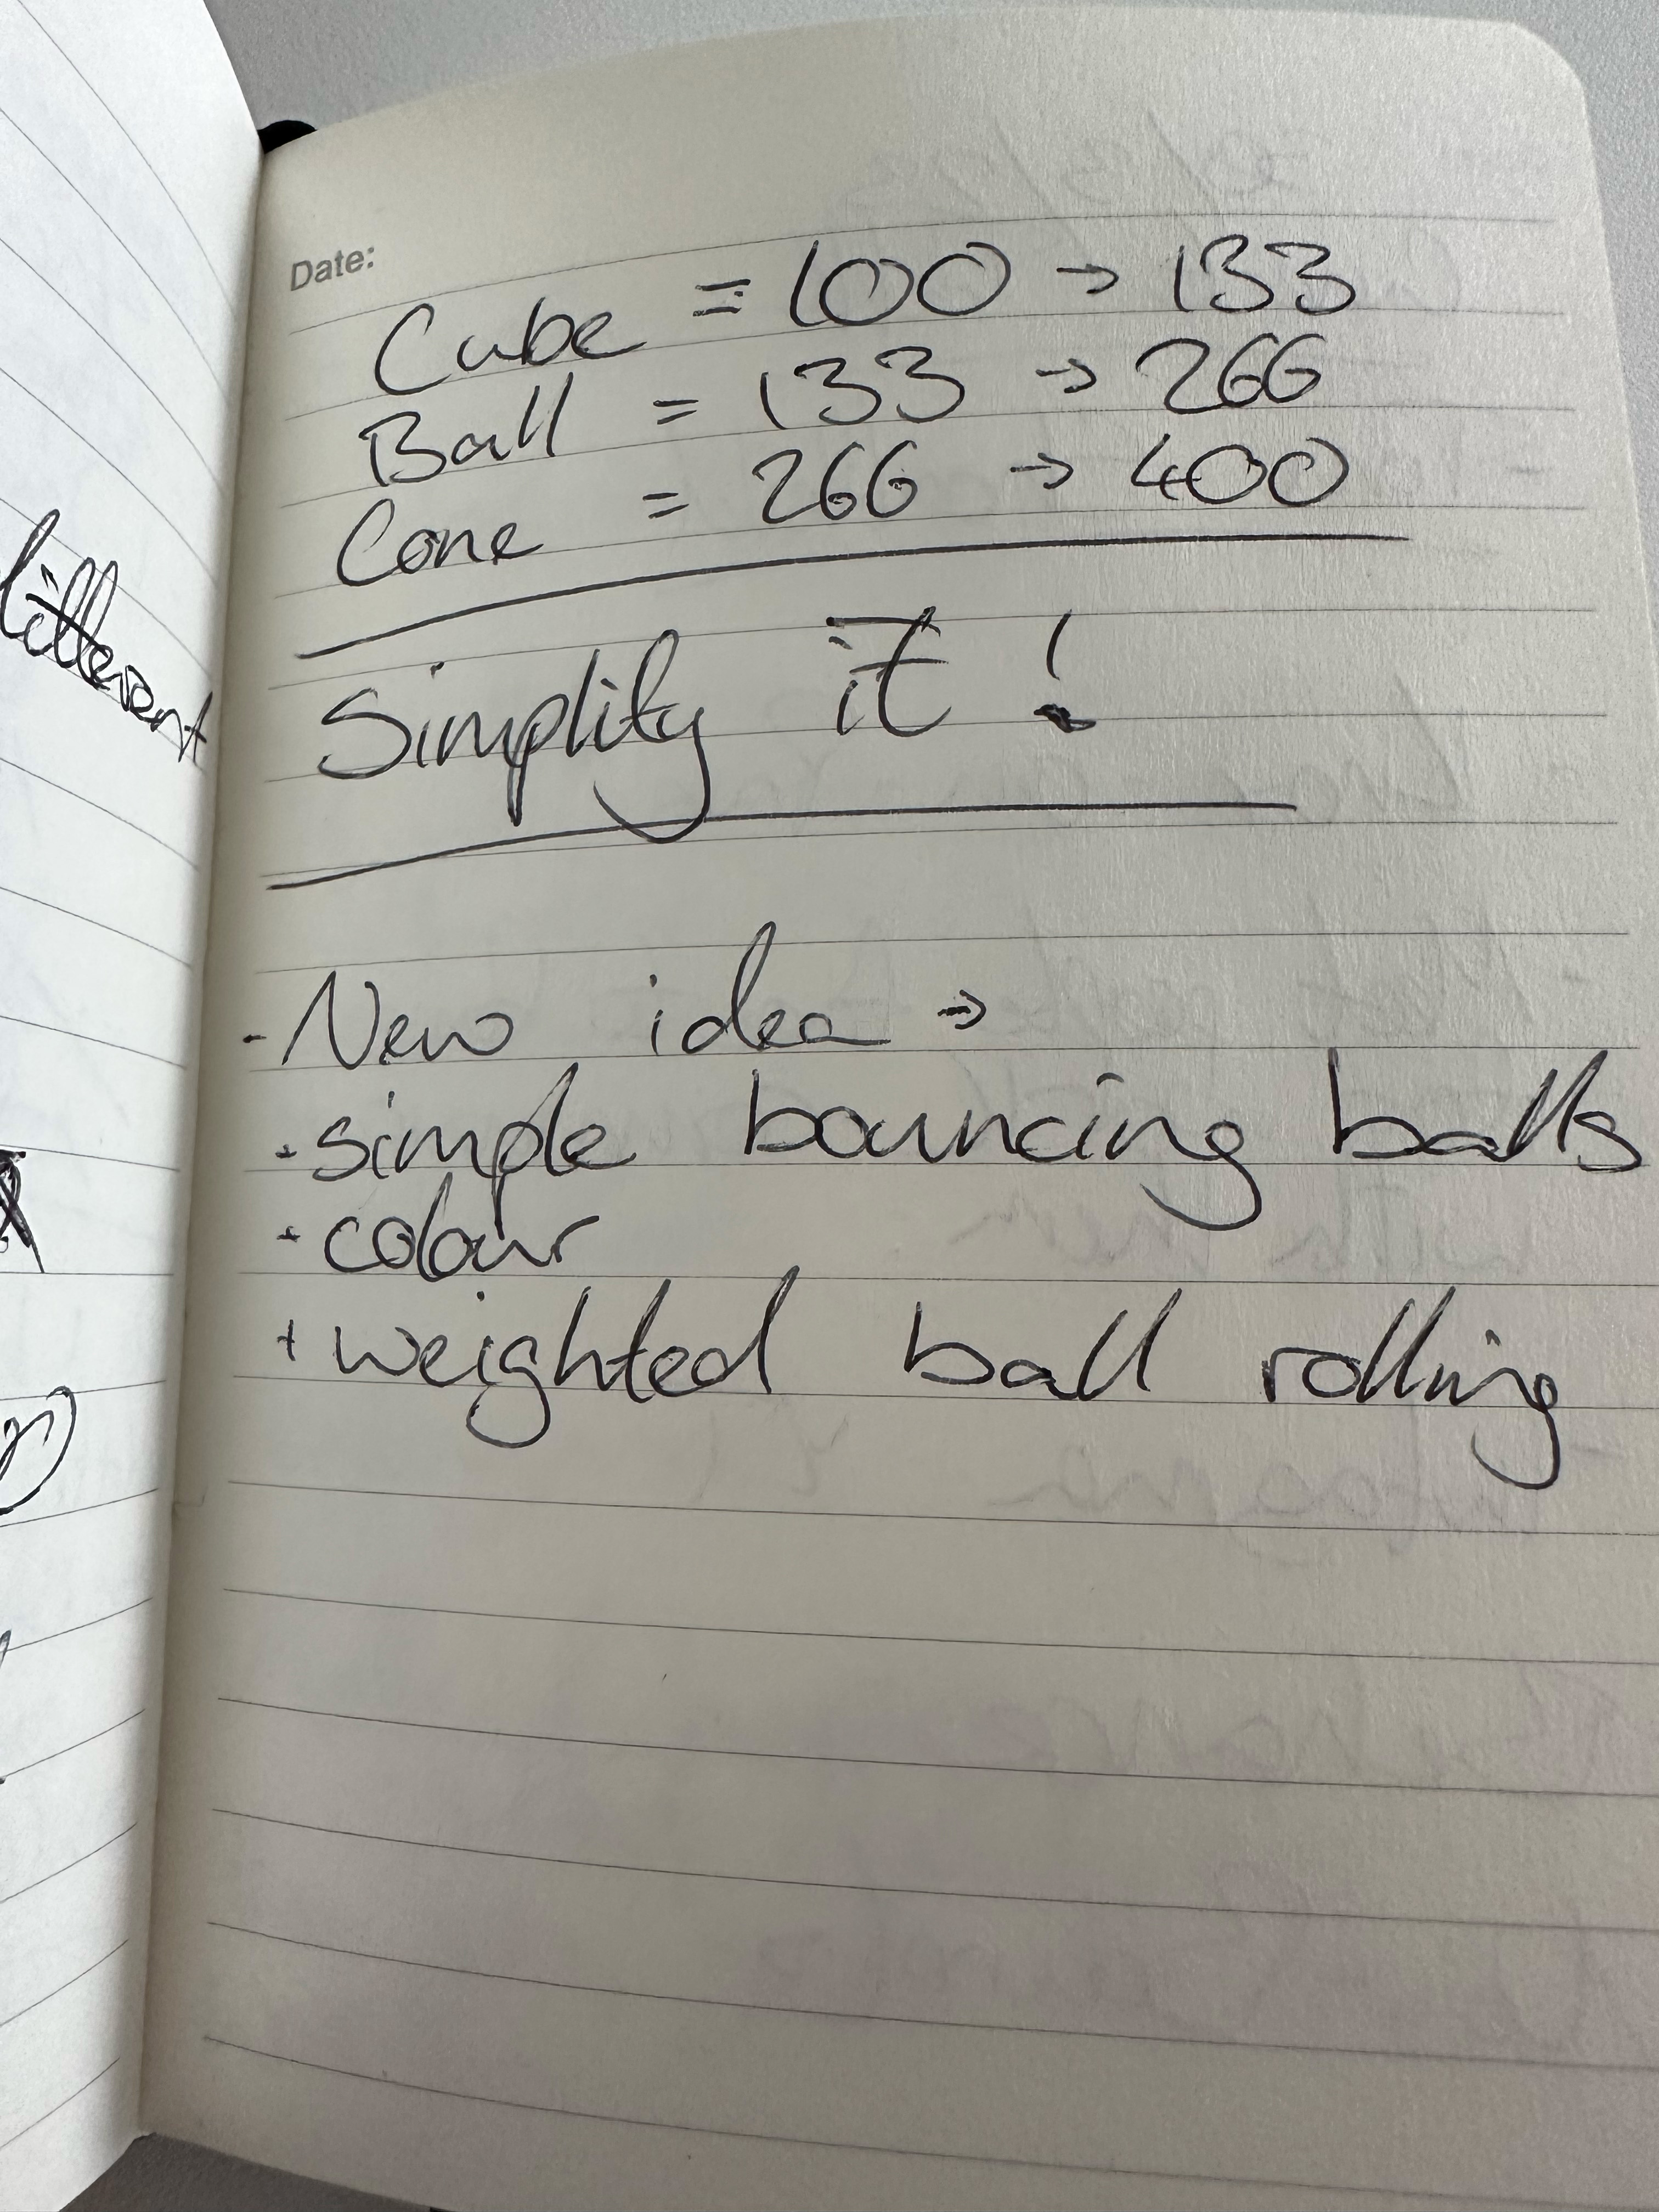 Date:
Cube = 100 → 133
Ball = 133 → 266
Cone = 266 → 400
Simplify it!
- New idea →
· simple bouncing balls
· colour
+ weighted ball rolling